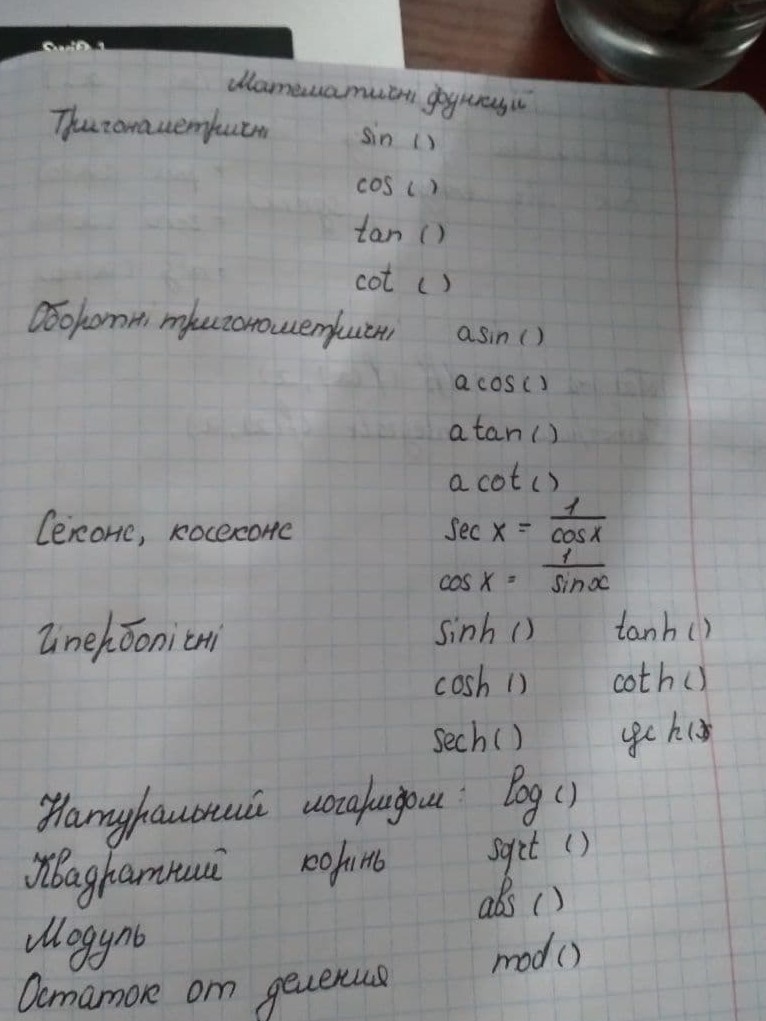 Математичні функції
Тригонаметричні sin ()
cos ()
tan ()
cot ()
Оборотні тригонометричні asin ()
acos ()
atan ()
acot ()
Секонс, косеконс sec x = 1/cosx
cos x = 1/sinx
Гіперболічні sinh () tanh ()
cosh () coth ()
sech ()
Натуральний логаридом: log ()
Квадратний корінь sqrt ()
Модуль abs ()
Остаток от деления mod ()